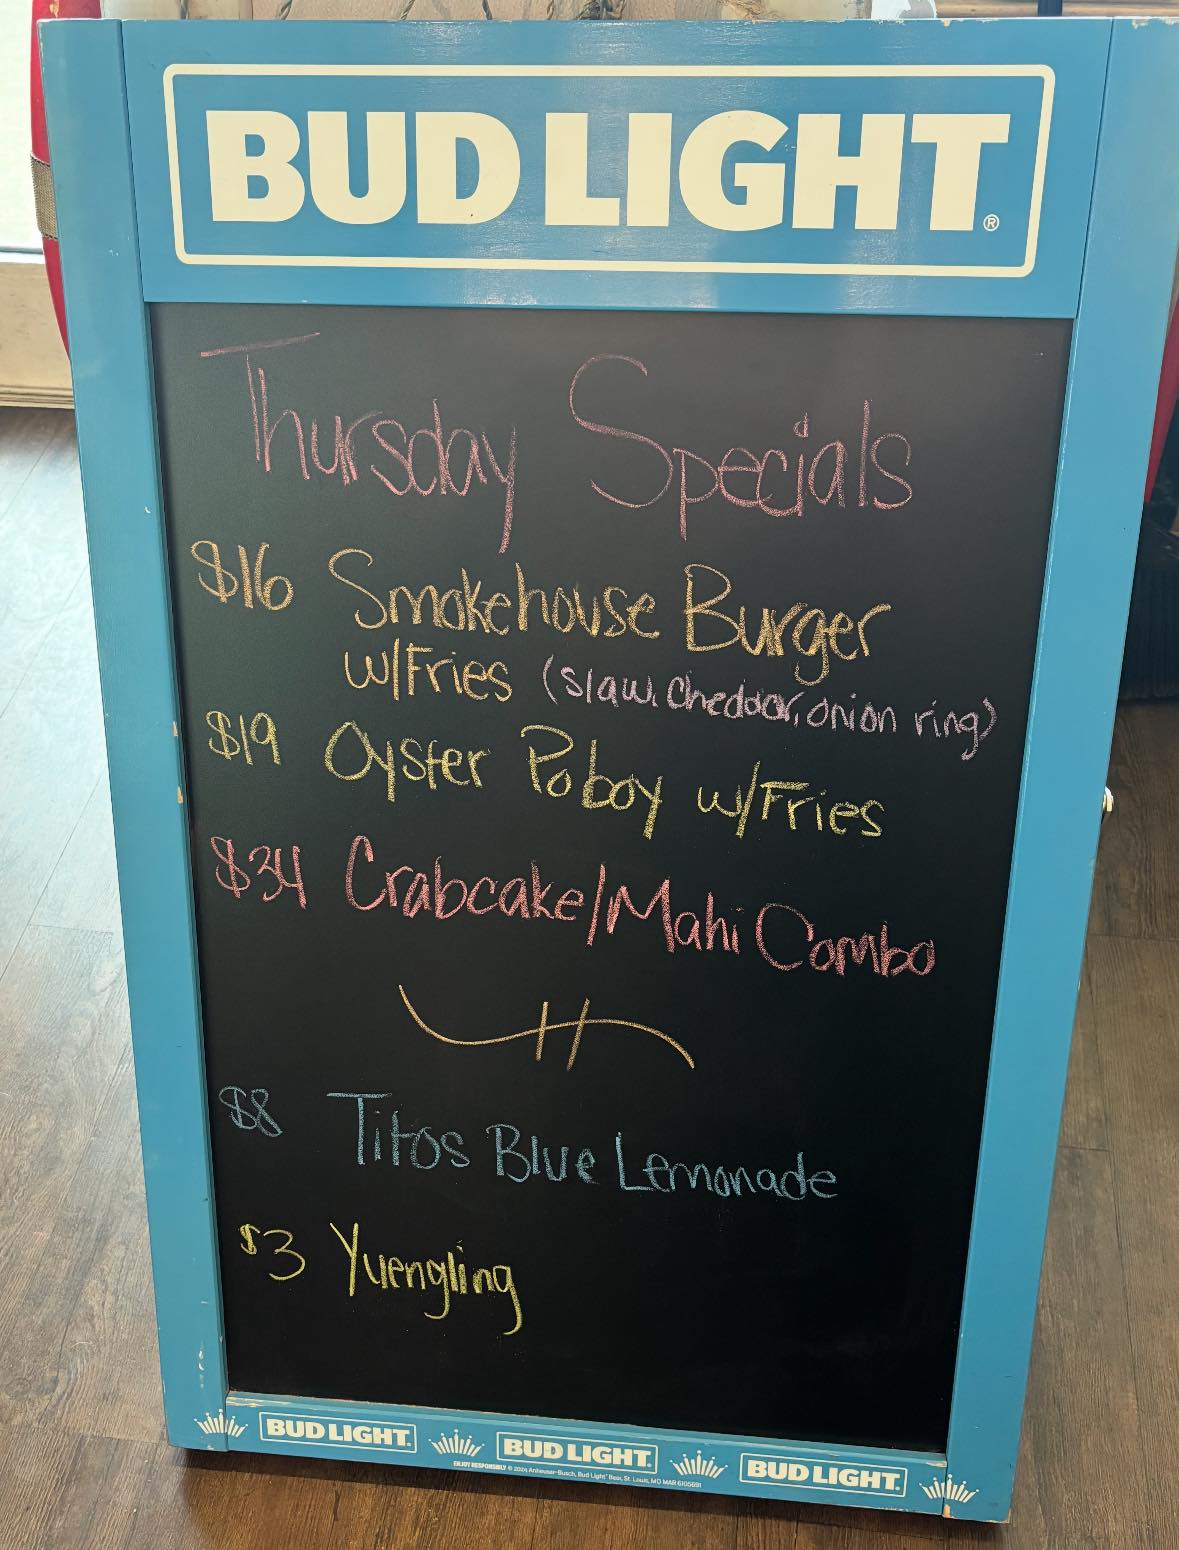 BUD LIGHT®
Thursday Specials
$16 Smokehouse Burger
w/Fries (slaw, cheddar, onion ring)
$19 Oyster Po boy w/Fries
$34 Crabcake/Mahi Combo
$8 Titos Blue Lemonade
$3 Yuengling
BUD LIGHT. BUD LIGHT. BUD LIGHT.
ENJOY RESPONSIBLY © 2024 Anheuser-Busch, Bud Light® Beer, St. Louis, MO MAR 6105691